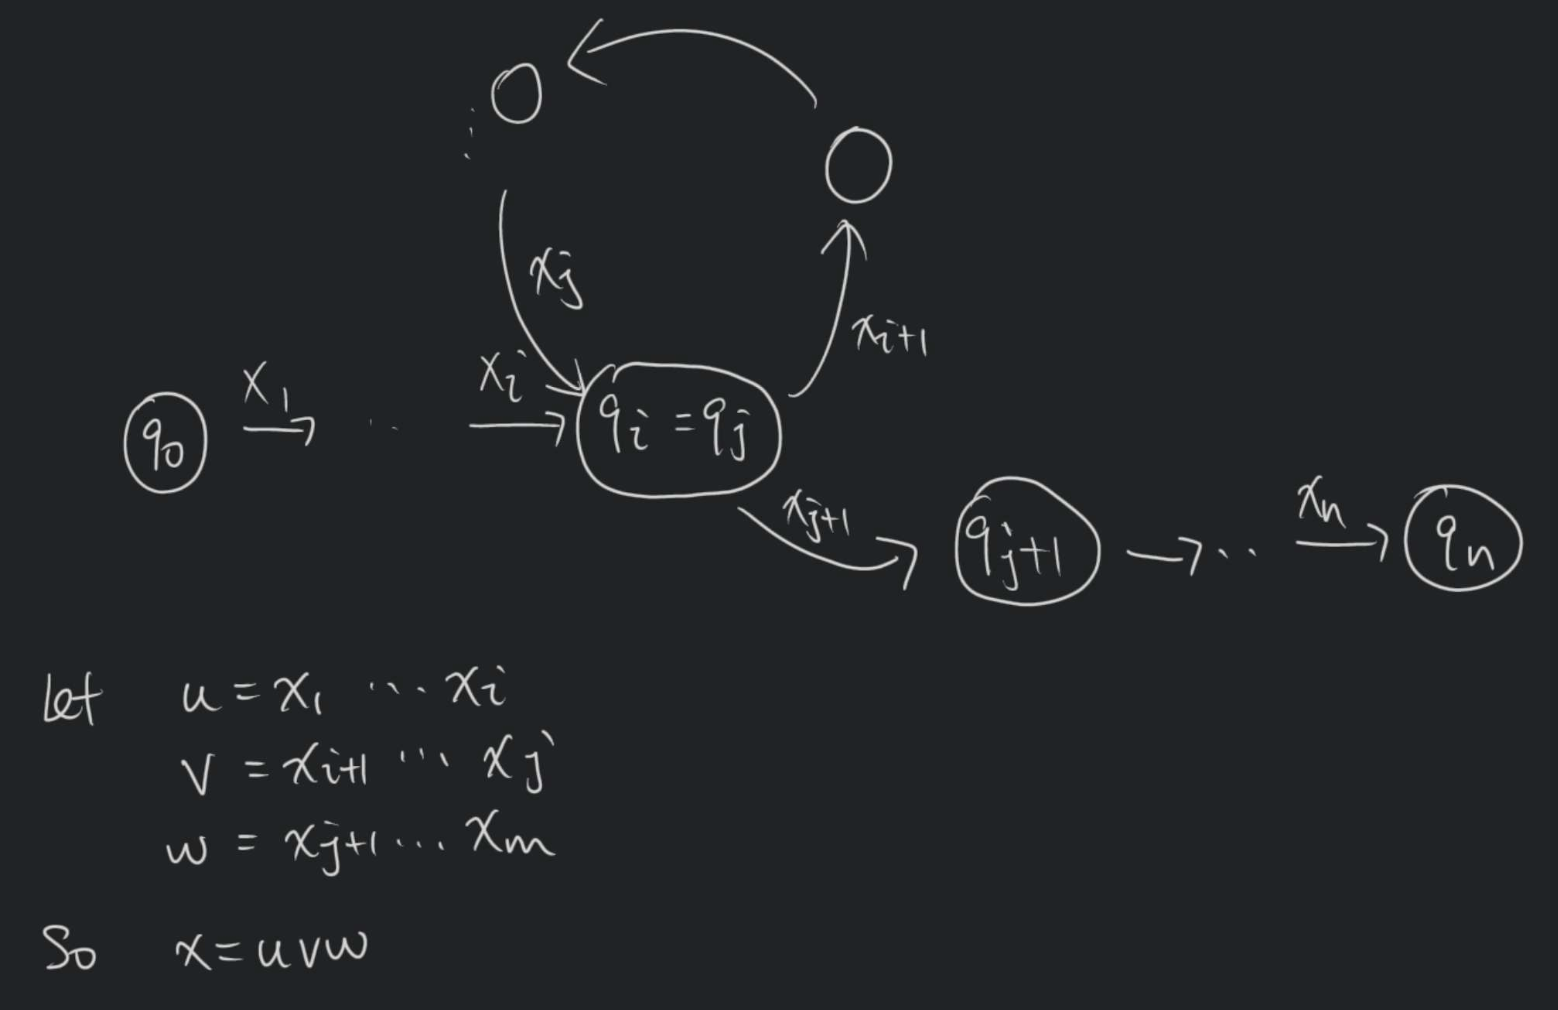 xⱼ
xᵢ₊₁
x₁
xᵢ
q₀
..
qᵢ = qⱼ
xⱼ₊₁
xₙ
qⱼ₊₁
..
qₙ
let u = x₁ ... xᵢ
v = xᵢ₊₁ ... xⱼ
w = xⱼ₊₁ ... xₘ
So x = uvw